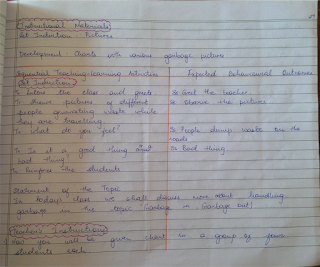 Instructional Materials
Set Induction Pictures
Development Charts with various garbage pictures
Sequential Teaching-learning Activities Expected Behavioural Outcomes
Set Induction
T: Enters the class and greets Ss: Greet the teacher.
T: Shows pictures of different Ss: Observe the pictures
people generating waste while
they are travelling
T: What do you feel? Ss: People dump waste on the
roads
T: Is it a good thing or Ss: Bad thing.
bad thing.
T: the students
Statement of the Topic
In today's class we shall discuss more about handling
garbage in the topic Garbage in, Garbage out!
Teacher's Instructions
Now you will be given chart in a group of four
students each.